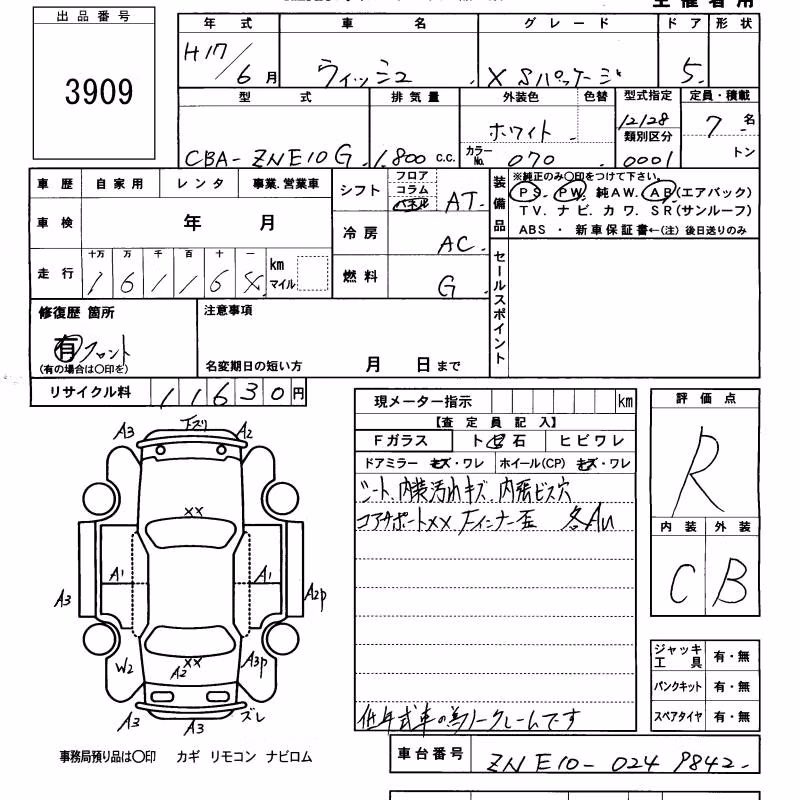 出品番号
3909
年式 車名 グレード ドア 形状
H17/6月 ウィッシュ X Sパッケージ 5
型式 排気量 外装色 色替 型式指定 定員・積載
CBA-ZNE10G 1,800 c.c. ホワイト 12128 7名
カラーNo. 070 類別区分 0001 トン
車歴 自家用 レンタ 事業.営業車
車検 年 月
走行 十万 万 千 百 十 一 km マイル
161164
シフト フロア コラム パネル AT
冷房 AC
燃料 G
装備品
※純正のみ○印をつけて下さい。
PS. PW. 純AW. AB(エアバック)
TV. ナビ. カワ. SR(サンルーフ)
ABS ・ 新車保証書←(注) 後日送りのみ
セールスポイント
修復歴 箇所
有 フロント
(有の場合は○印を)
注意事項
名変期日の短い方 月 日まで
リサイクル料 11630円
現メーター指示 km
【査定員記入】
Fガラス トビ石 ヒビワレ
ドアミラー キズ・ワレ ホイール(CP) キズ・ワレ
シート、内装汚れキズ 内張ビス穴
コアサポートXX Fインナー歪 各AU
低年式車の為ノークレームです
評価点
R
内装 外装
C B
ジャッキ工具 有・無
パンクキット 有・無
スペアタイヤ 有・無
A3 下ズリ A2
XX
A1 A1
A3 A2P
W2 XX A2 A3P
A3 A3 ズレ
事務局預り品は○印 カギ リモコン ナビロム
車台番号 ZNE10-0249842